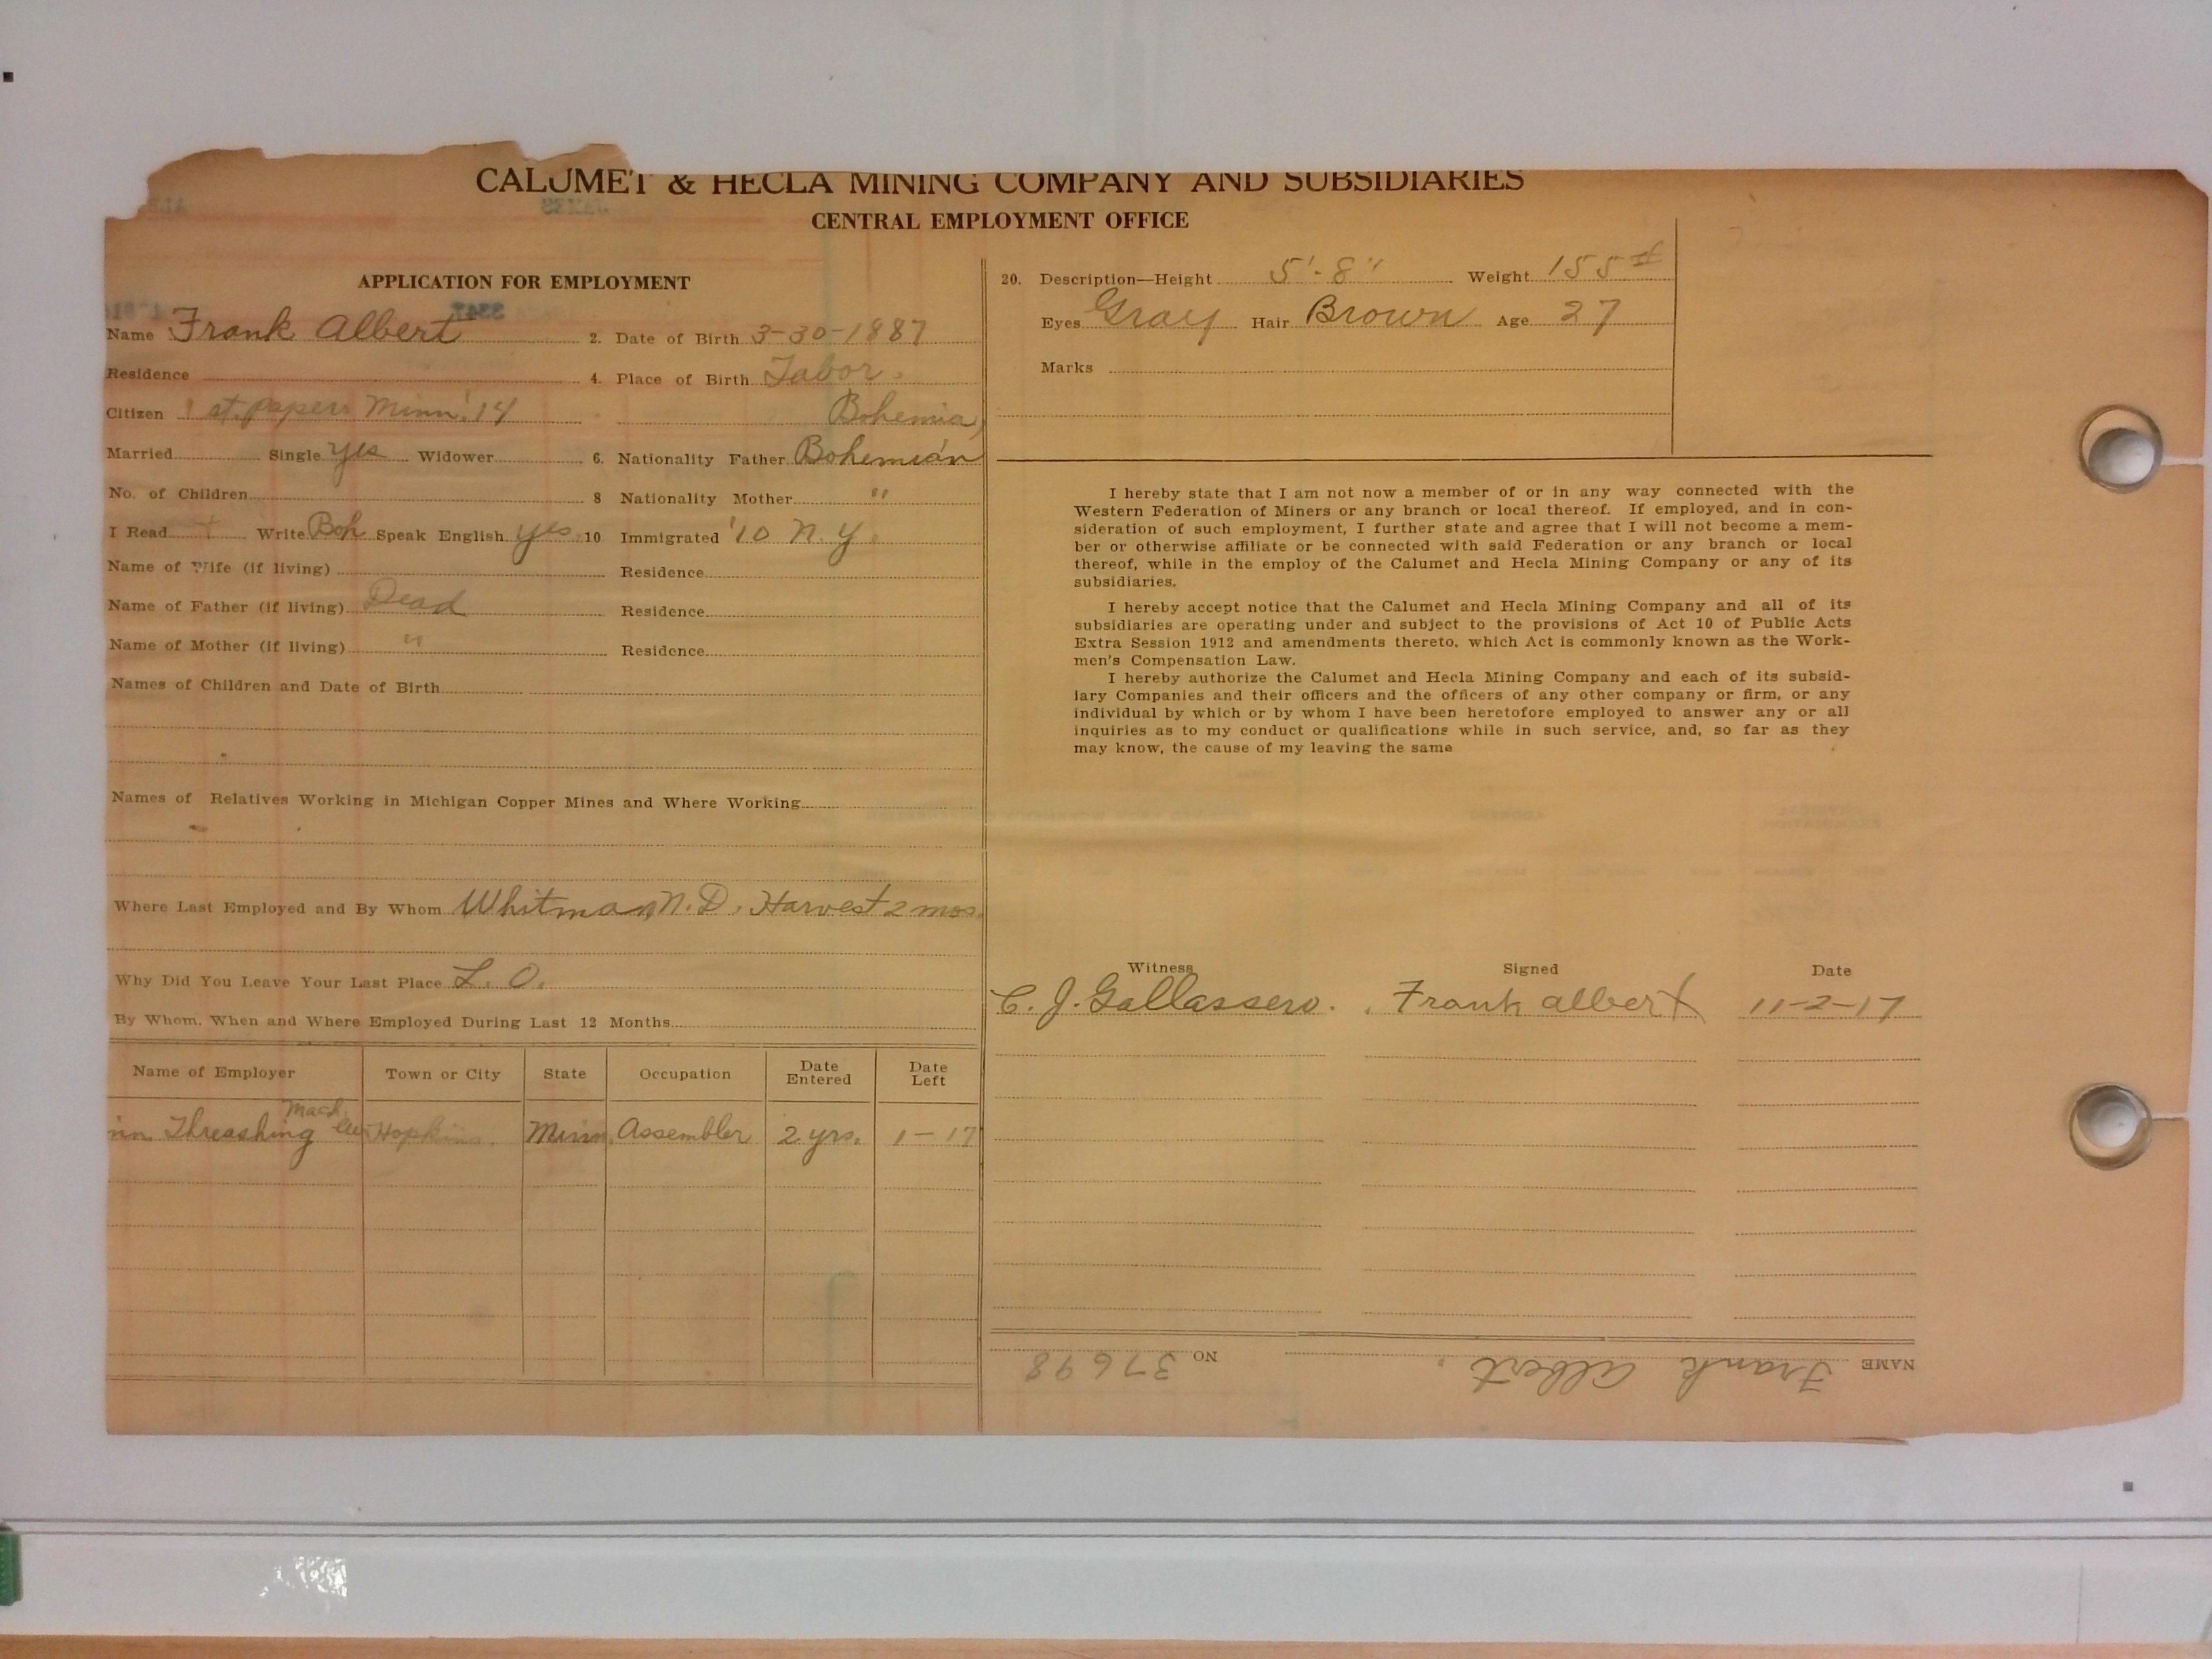 CALUMET & HECLA MINING COMPANY AND SUBSIDIARIES
CENTRAL EMPLOYMENT OFFICE
APPLICATION FOR EMPLOYMENT
Name Frank Albert 2. Date of Birth 3-30-1887
Residence 4. Place of Birth Tabor.
Citizen 1st papers Minn. '14 Bohemia
Married Single yes Widower 6. Nationality Father Bohemian
No. of Children 8 Nationality Mother "
I Read + Write Boh Speak English yes 10 Immigrated '10 N.Y.
Name of Wife (if living) Residence
Name of Father (if living) Dead Residence
Name of Mother (if living) " Residence
Names of Children and Date of Birth
Names of Relatives Working in Michigan Copper Mines and Where Working
Where Last Employed and By Whom Whitman N.D. Harvest 2 mos.
Why Did You Leave Your Last Place L. O.
By Whom, When and Where Employed During Last 12 Months
Name of Employer Town or City State Occupation Date Entered Date Left
Mach.
Threashing Hopkins. Minn. Assembler 2 yrs. 1-17
20. Description—Height 5'-8" Weight 155#
Eyes Gray Hair Brown Age 27
Marks
I hereby state that I am not now a member of or in any way connected with the
Western Federation of Miners or any branch or local thereof. If employed, and in con-
sideration of such employment, I further state and agree that I will not become a mem-
ber or otherwise affiliate or be connected with said Federation or any branch or local
thereof, while in the employ of the Calumet and Hecla Mining Company or any of its
subsidiaries.
I hereby accept notice that the Calumet and Hecla Mining Company and all of its
subsidiaries are operating under and subject to the provisions of Act 10 of Public Acts
Extra Session 1912 and amendments thereto, which Act is commonly known as the Work-
men's Compensation Law.
I hereby authorize the Calumet and Hecla Mining Company and each of its subsid-
iary Companies and their officers and the officers of any other company or firm, or any
individual by which or by whom I have been heretofore employed to answer any or all
inquiries as to my conduct or qualifications while in such service, and, so far as they
may know, the cause of my leaving the same
Witness Signed Date
C. J. Gallassero. Frank albert 11-2-17
NAME Frank Albert. NO 37698